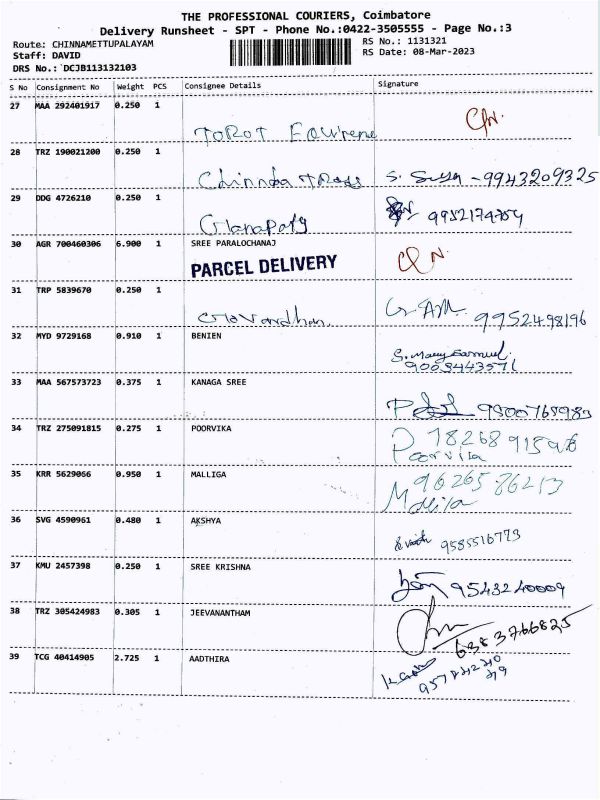 THE PROFESSIONAL COURIERS, Coimbatore
Delivery Runsheet - SPT - Phone No.:0422-3505555 - Page No.:3
Route: CHINNAMETTUPALAYAM RS No.: 1131321
Staff: DAVID RS Date: 08-Mar-2023
DRS No.: DCJB113132103
S No Consignment No Weight PCS Consignee Details Signature
27 MAA 292401917 0.250 1
28 TRZ 190021200 0.250 1
Chinnba S. - 9943209325
29 DDG 4726210 0.250 1
Ganapaty
30 AGR 700460306 6.900 1 SREE PARALOCHANAJ
PARCEL DELIVERY
31 TRP 5839670 0.250 1
Govardhan 9952498196
32 MYD 9729168 0.910 1 BENIEN
S. Mary Samuel.
9003443571
33 MAA 567573723 0.375 1 KANAGA SREE
9500765983
34 TRZ 275091815 0.275 1 POORVIKA
Poorvika
35 KRR 5629066 0.950 1 MALLIGA
9626586213
36 SVG 4590961 0.480 1 AKSHYA
9585516773
37 KMU 2457398 0.250 1 SREE KRISHNA
9543240009
38 TRZ 305424983 0.305 1 JEEVANANTHAM
6383766825
39 TCG 40414905 2.725 1 AADTHIRA